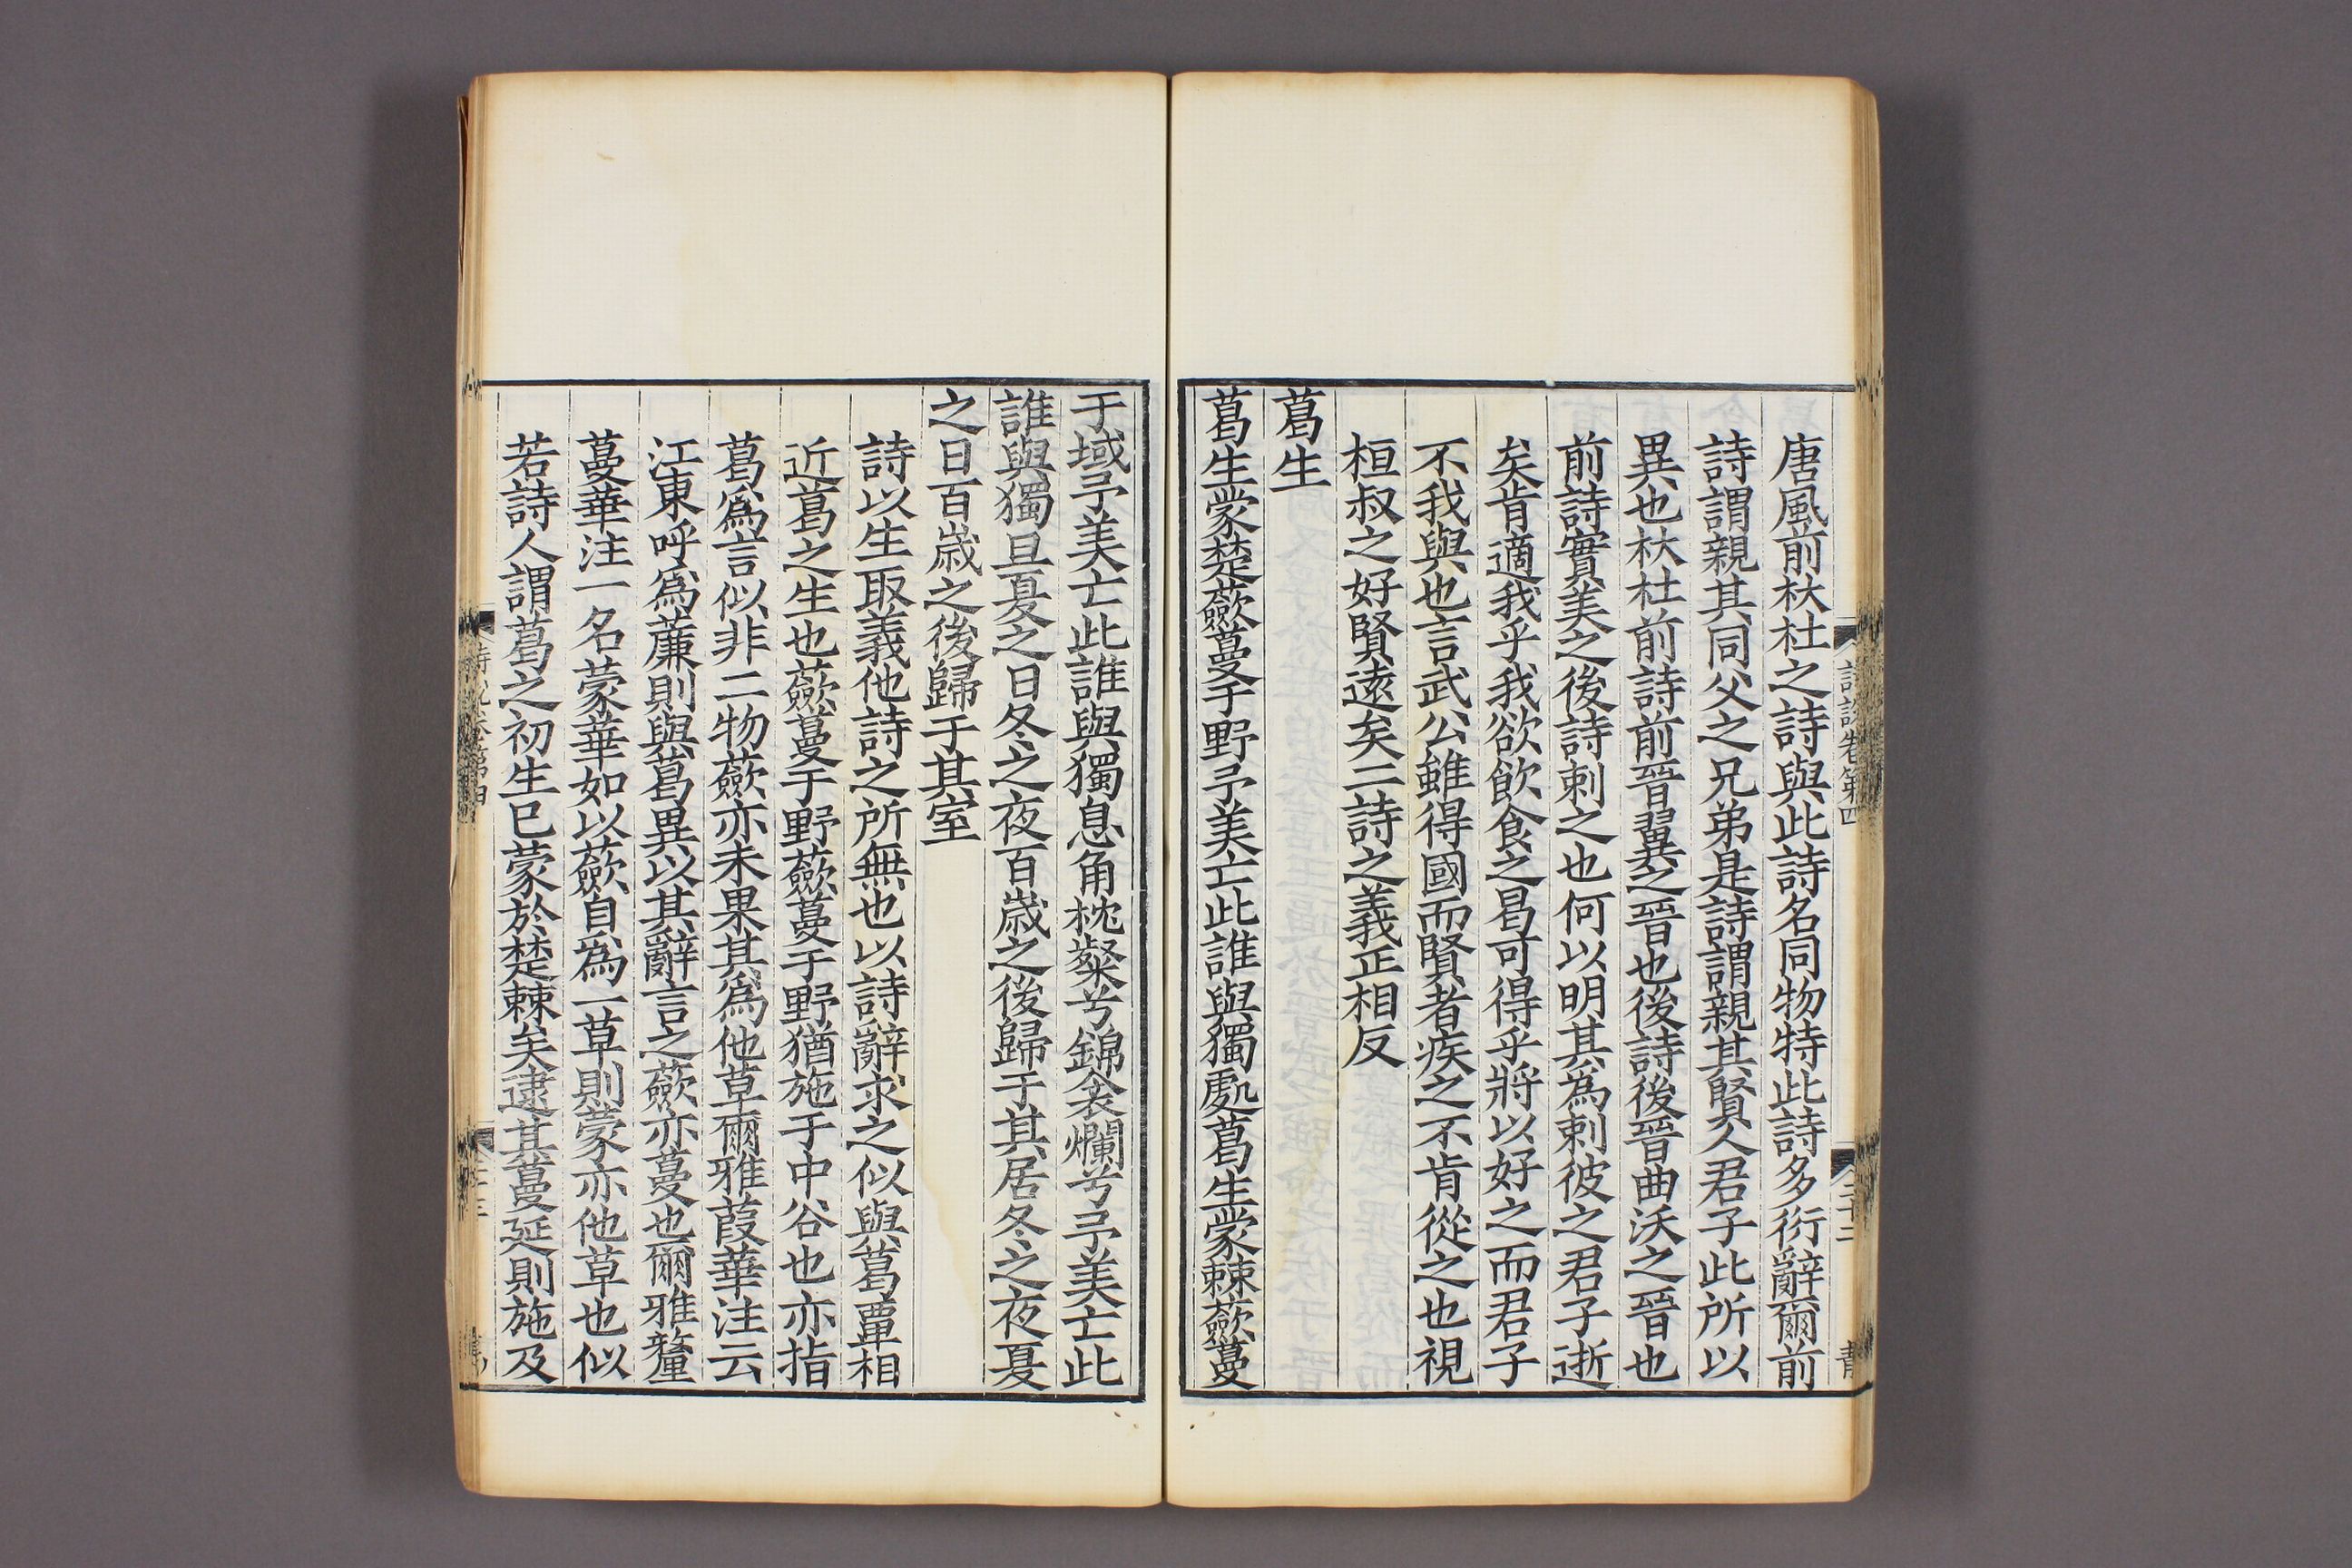 唐風前杕杜之詩與此詩名同物特此詩多衍辭爾前
詩謂親其同父之兄弟是詩謂親其賢人君子此所以
異也杕杜前詩前晉翼之晉也後詩後晉曲沃之晉也
前詩實美之後詩刺之也何以明其爲刺彼之君子逝
矣肯適我乎我欲飲食之曷可得乎將以好之而君子
不我與也言武公雖得國而賢者疾之不肯從之也視
桓叔之好賢遠矣二詩之義正相反
葛生
葛生蒙楚蘞蔓于野予美亡此誰與獨處葛生蒙棘蘞蔓
于域予美亡此誰與獨息角枕粲兮錦衾爛兮予美亡此
誰與獨旦夏之日冬之夜百歲之後歸于其居冬之夜夏
之日百歲之後歸于其室
詩以生取義他詩之所無也以詩辭求之似與葛覃相
近葛之生也蘞蔓于野蘞蔓于野猶施于中谷也亦指
葛爲言似非二物蘞亦未果其爲他草爾雅葭華注云
江東呼爲薕則與葛異以其辭言之蘞亦蔓也爾雅釐
蔓華注一名蒙華如以蘞自爲一草則蒙亦他草也似
若詩人謂葛之初生已蒙於楚棘矣逮其蔓延則施及
詩說卷第四
二十二
詩說卷第四
二十三